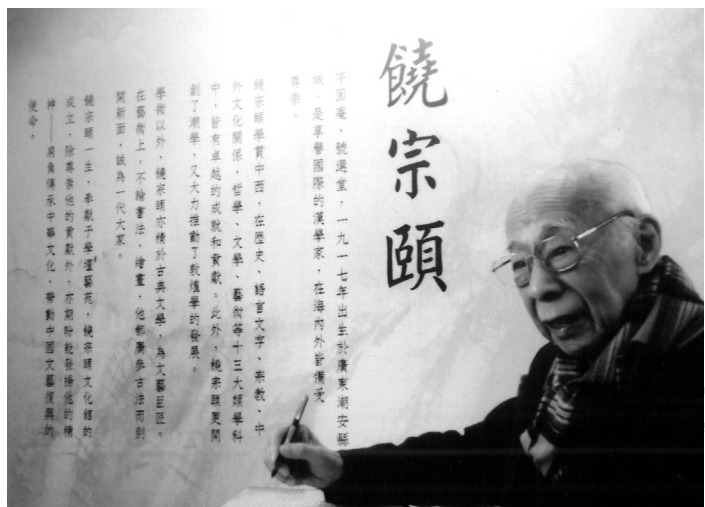 饒宗頤
字固庵，號選堂，一九一七年出生於廣東潮安縣
城，是享譽國際的漢學家，在海內外皆備受
尊崇。
饒宗頤學貫中西，在歷史、語言文字、宗教、中
外文化關係、哲學、文學、藝術等十三大類學科
中，皆有卓越的成就和貢獻。此外，饒宗頤更開
創了潮學，又大力推動了敦煌學的發展。
學術以外，饒宗頤亦精於古典文學，為文藝巨匠。
在藝術上，不論書法、繪畫，他都廣參古法而別
開新面，誠為一代大家。
饒宗頤一生，奉獻于學壇藝苑，饒宗頤文化館的
成立，除尊崇他的貢獻外，亦期盼能發揚他的精
神——肩負傳承中華文化、帶動中國文藝復興的
使命。